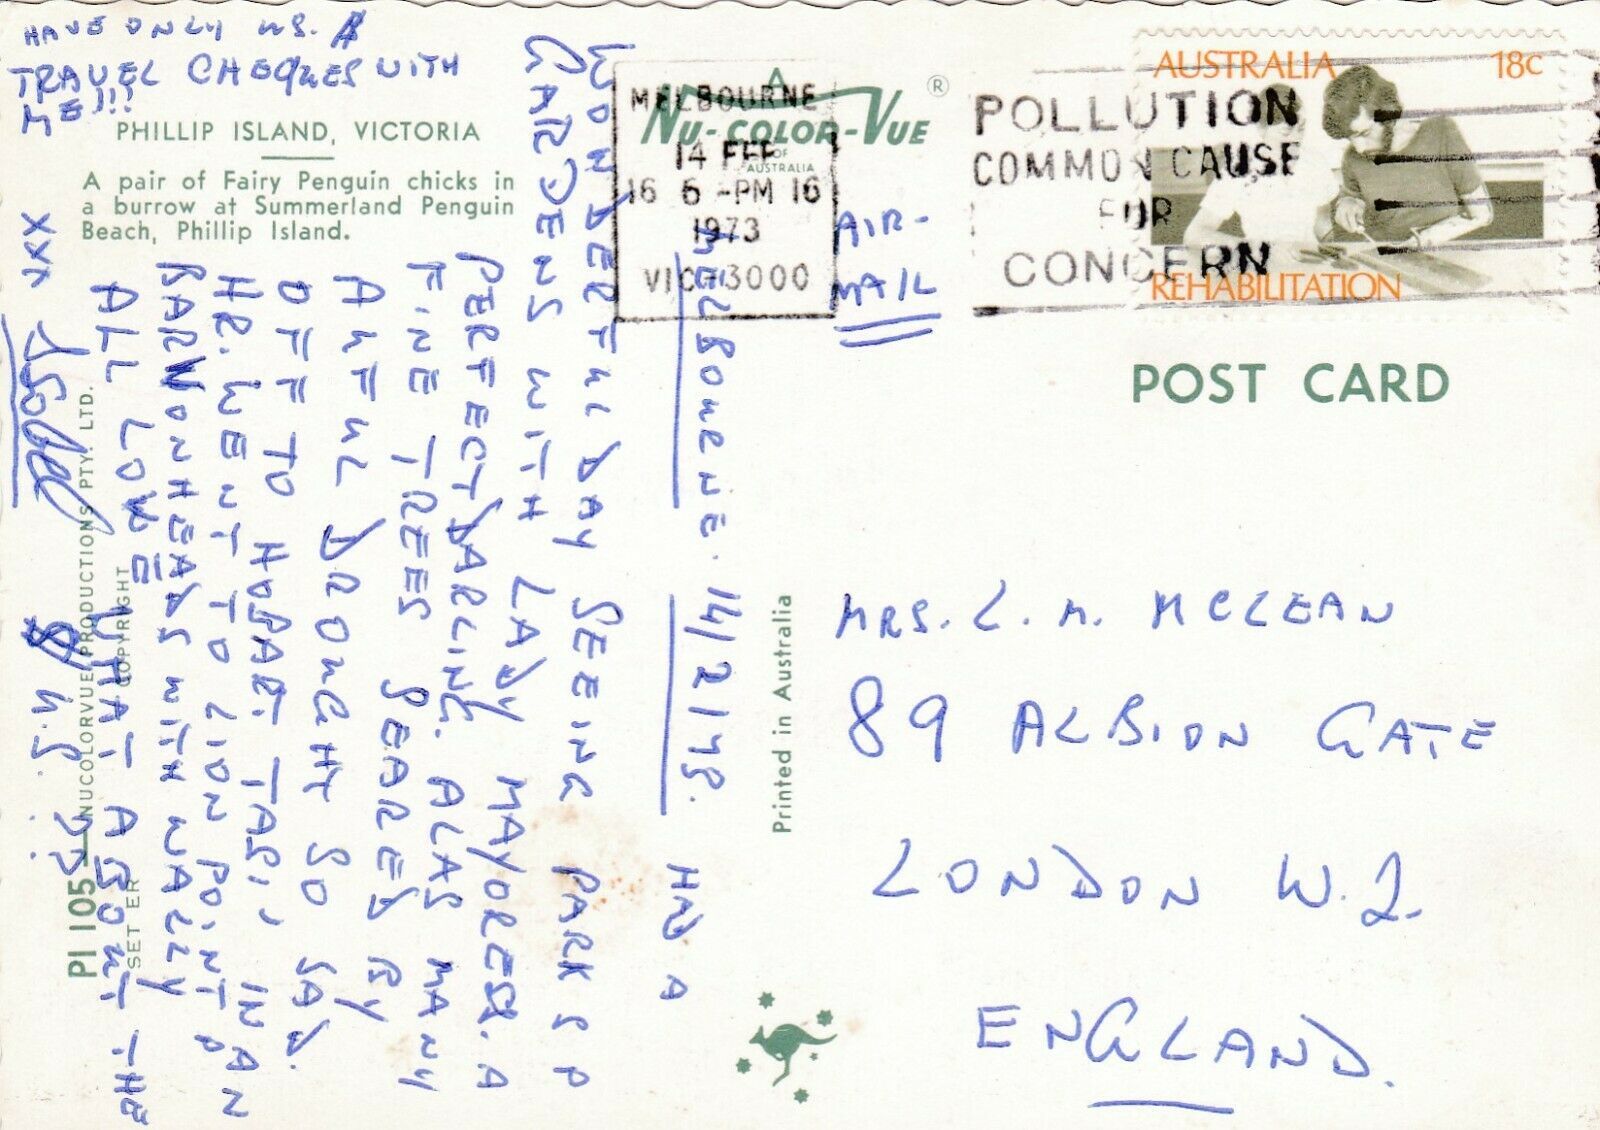 HAVE ONLY US. $
TRAVEL CHEQUES WITH
ME!!!
PHILLIP ISLAND, VICTORIA
A pair of Fairy Penguin chicks in
a burrow at Summerland Penguin
Beach, Phillip Island.
NU-COLOR-VUE ®
OF
AUSTRALIA
MELBOURNE
14 FEB
16 6 -PM 16
1973
VIC-3000
POLLUTION
COMMON CAUSE
FOR
CONCERN
AUSTRALIA 18c
REHABILITATION
AIR-
MAIL
POST CARD
MELBOURNE. 14/2/73. HAD A
WONDERFUL DAY SEEING PARKS &
GARDENS WITH LADY MAYORESS. A
PERFECT DARLING. ALAS MANY
FINE TREES SEARED BY
AWFUL DROUGHT SO SAD.
OFF TO HOBART TAS." IN AN
HR. WENT TO LION POINT
WITH WALLY
ALL LOVE WHAT ABOUT THE
xxx Isobel $ U.S.
MRS. L. M. MCLEAN
89 ALBION GATE
LONDON W.2.
ENGLAND.
Printed in Australia
NUCOLORVUE PRODUCTIONS PTY. LTD.
COPYRIGHT
PI 105
SET ER